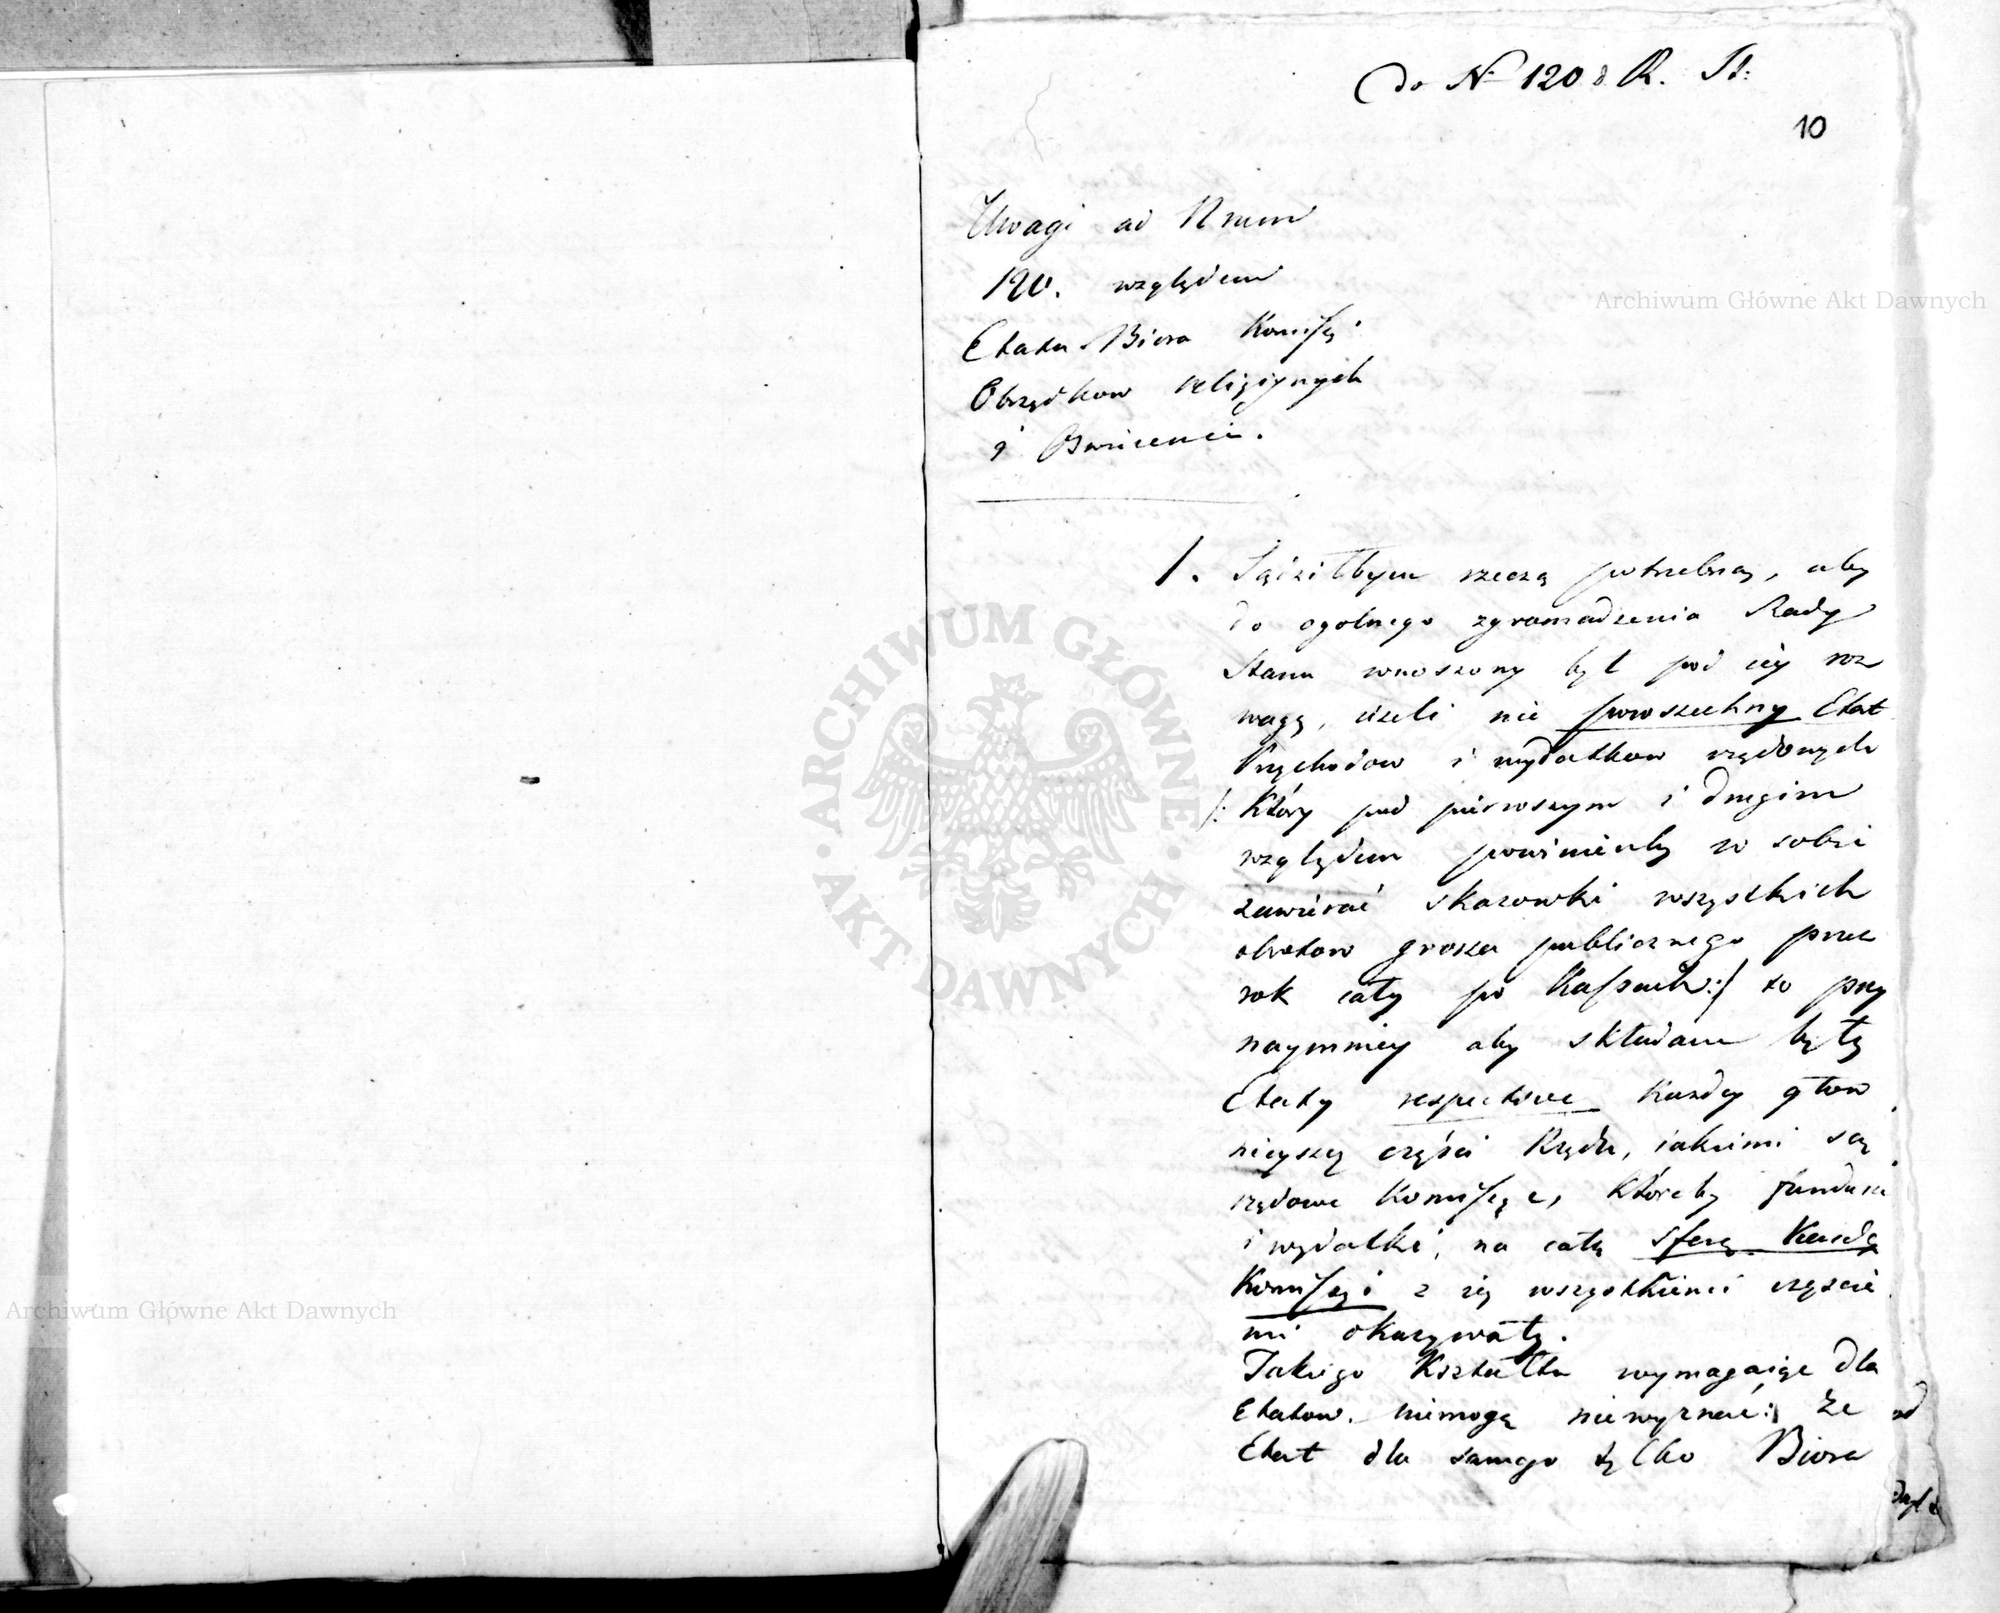 do N 120 R. St:
10
Uwagi ad Num
120. względem
Etatu Biora Komissyi
Obrządkow religiynych
i Oświecenia.
1. Sądziłbym rzeczą potrzebną, aby
do ogolnego zgromadzenia Rady
Stanu wnoszony był pod iey roz
wagę, ieżeli nie powszechny Etat
Przychodow i wydatkow rządowych
/: Który pod pierwszym i drugim
względem powinienby w sobie
zawierać skazowki wszystkich
obrotow grosza publicznego przez
rok cały po Kassach :/ to przy
naymniey aby składane były
Etaty respective każdey głow
nieyszey części Rządu, iakiemi są
rządowe Komissye, któreby fundusze
i wydatki, na całą sferę każdey
Komissyi z iey wszystkiemi częścia
mi okazywały.
Takiego Kształtu wymagaiąc dla
Etatow. niemogę niewyznać: że
Etat dla samego tylko Biora
Archiwum Główne Akt Dawnych
Archiwum Główne Akt Dawnych
ARCHIWUM GŁÓWNE
AKT DAWNYCH